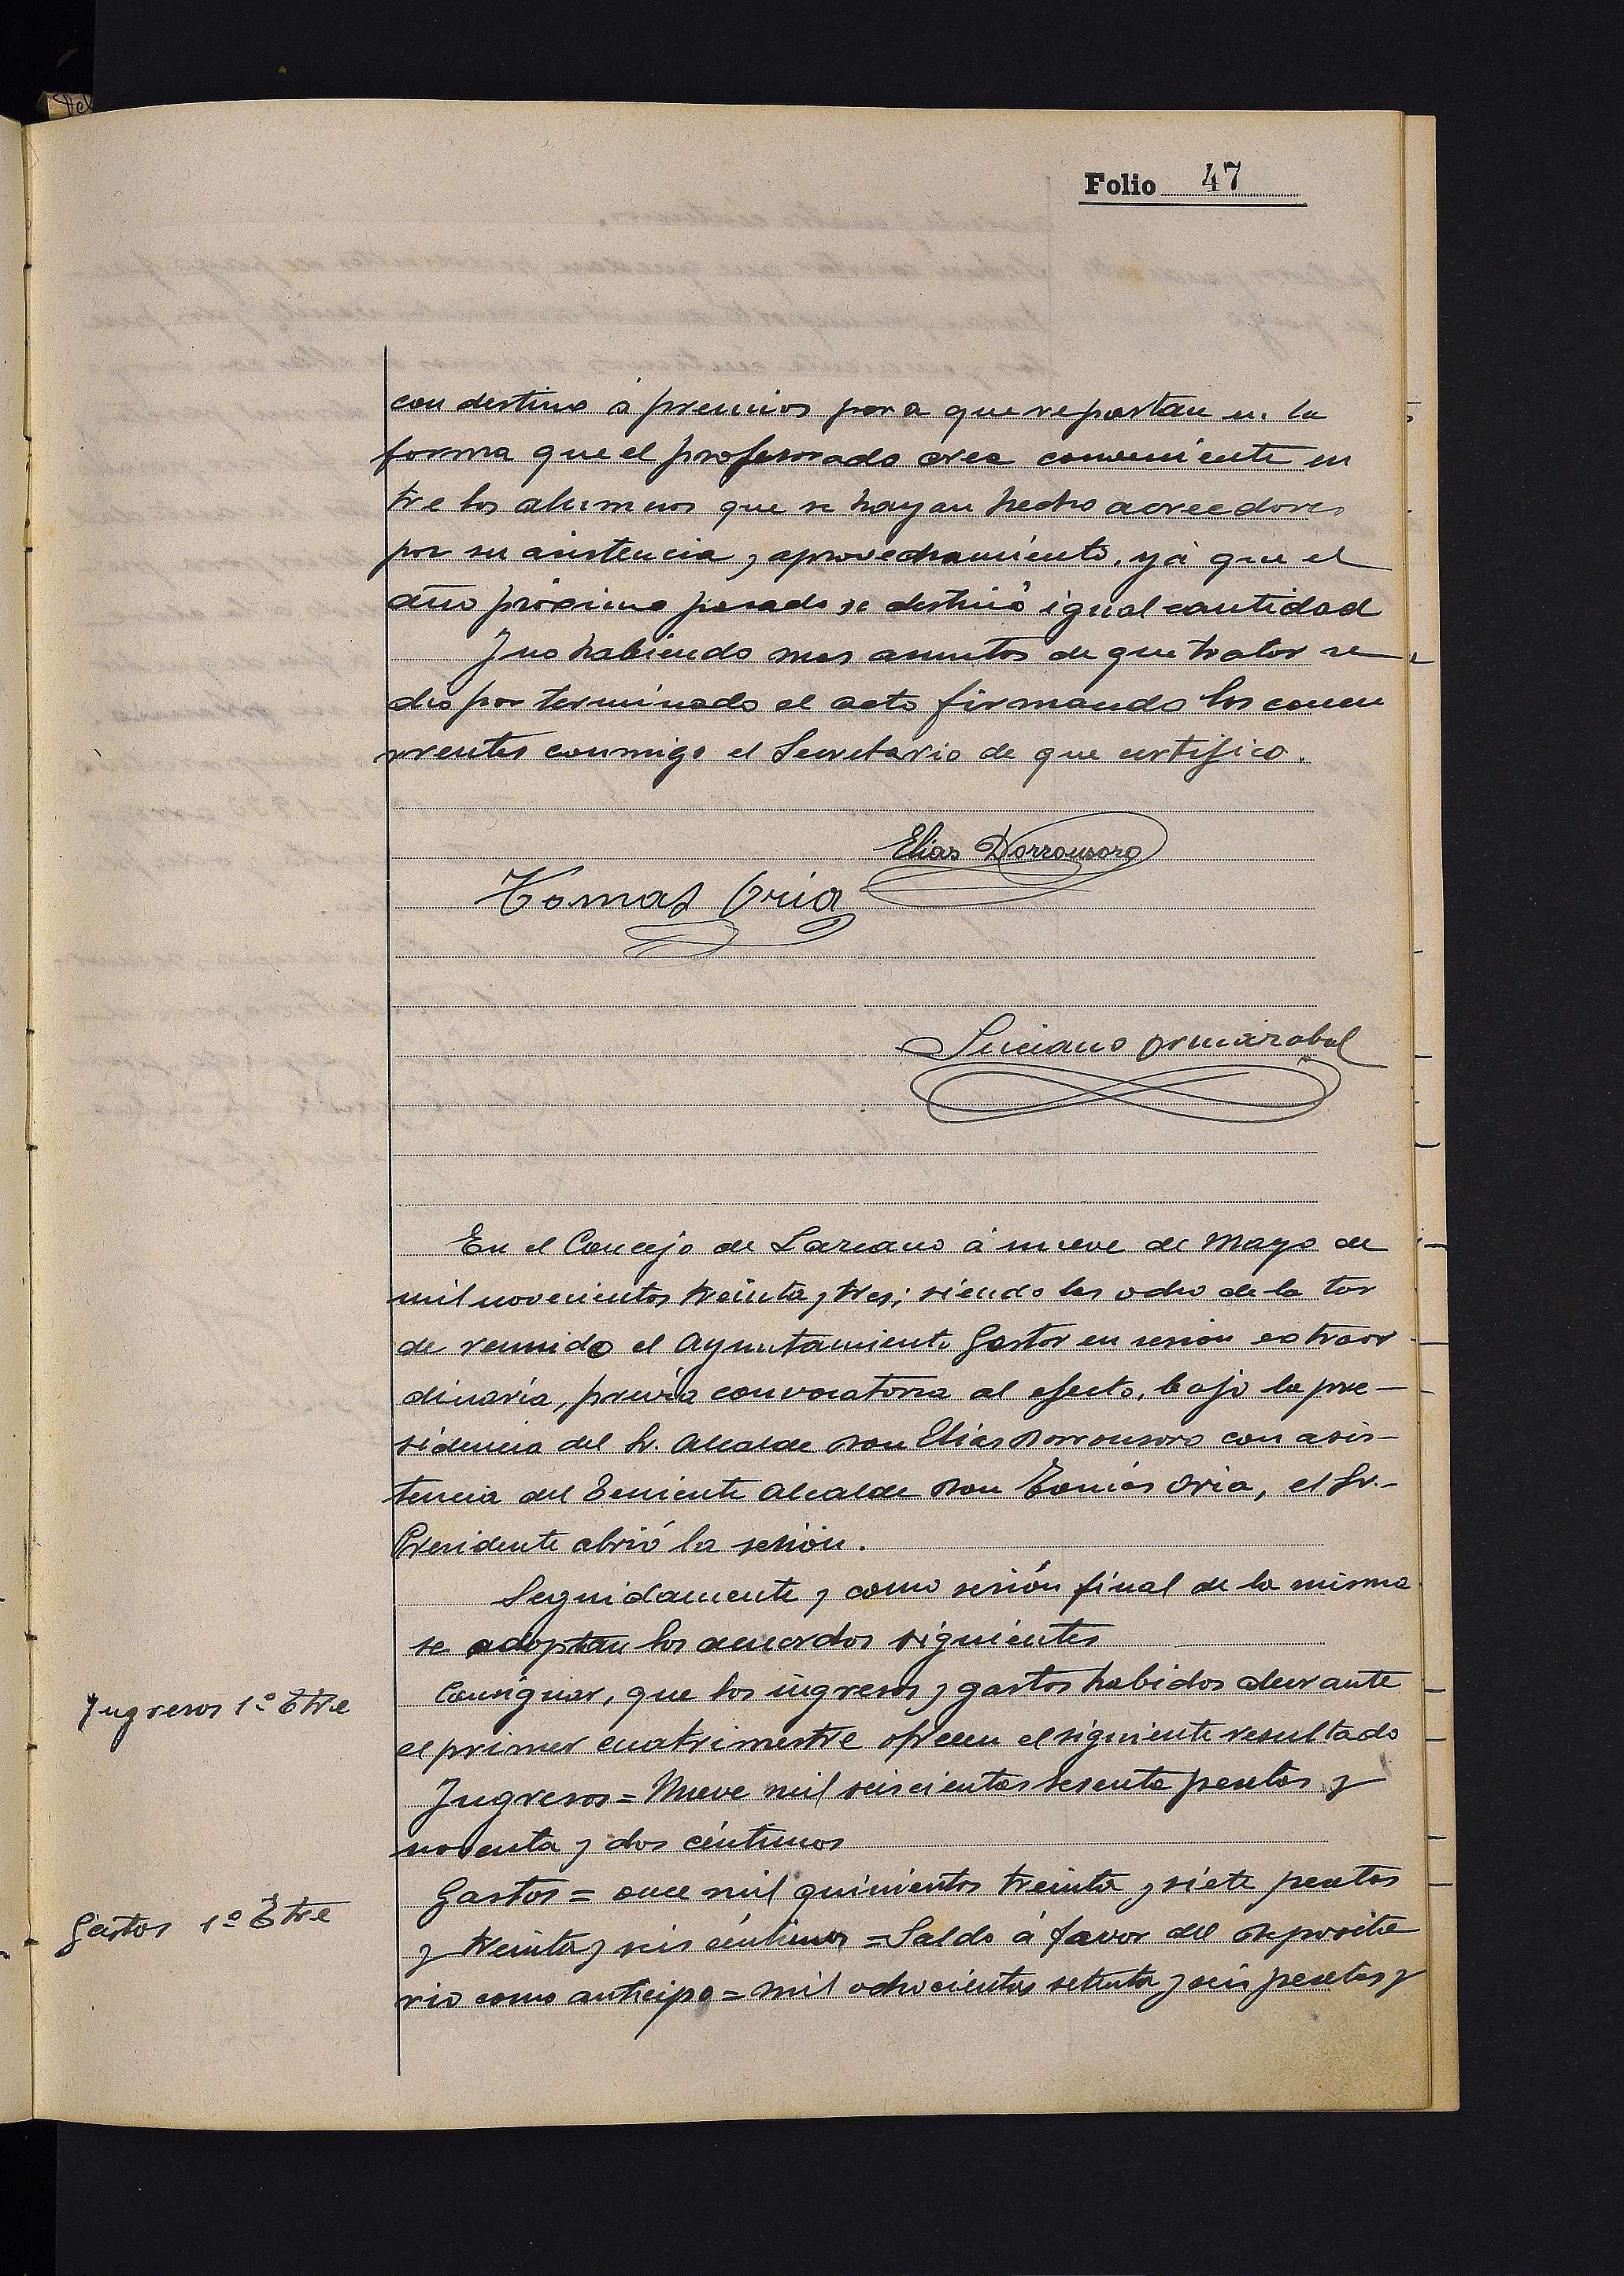 Folio 47
con destino á premios para que repartan en la
forma que el profesorado crea conveniente en
tre los alumnos que se hayan hecho acreedores
por su asistencia y aprovechamiento, yá que el
año próximo pasado se destinó igual cantidad
Y no habiendo mas asuntos de que tratar se
dió por terminado el acto firmando los concu
rrentes conmigo el Secretario de que certifico.
Elias Dorronsoro
Tomas Oria
Luciano Ormazabal
En el Concejo de Lazcano á nueve de Mayo de
mil novecientos treinta y tres; siendo las ocho de la tar
de reunido el Ayuntamiento Gestor en sesion extraor
dinaria, previa convocatoria al efecto, bajo la pre-
sidencia del Sr. Alcalde Don Elias Dorronsoro con asis-
tencia del Teniente Alcalde Don Tomás Oria, el Sr.-
Presidente abrió la sesión.
Seguidamente y como sesión final de la misma
se adoptan los acuerdos siguientes
Ingresos 1º Ctre
Consignar, que los ingresos y gastos habidos durante
el primer cuatrimestre ofrecen el siguiente resultado
Ingresos = Nueve mil seiscientas sesenta pesetas y
noventa y dos céntimos
Gastos = once mil quinientos treinta y siete pesetas
Gastos 1º Ctre
y treinta y seis céntimos = Saldo á favor del Deposita
rio como anticipo = mil ochocientas setenta y seis pesetas y